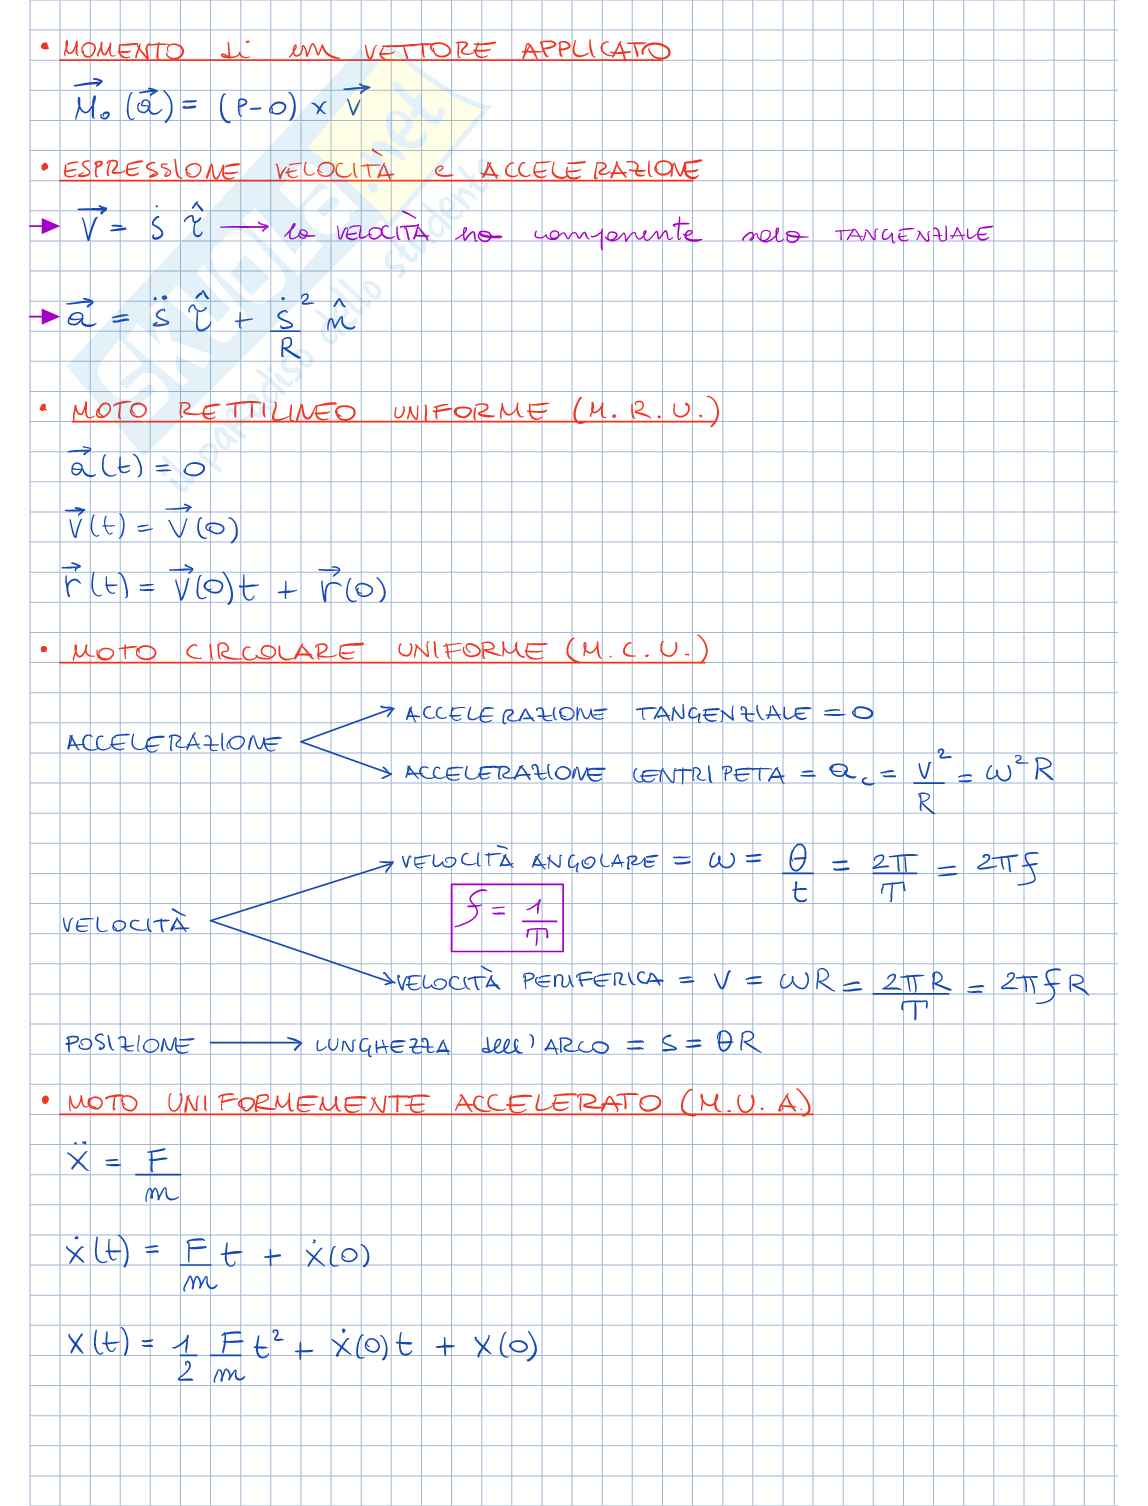 • MOMENTO di un VETTORE APPLICATO
M⃗₀ (a⃗) = (P-O) × v⃗
• ESPRESSIONE VELOCITÀ e ACCELERAZIONE
v⃗ = ṡ τ̂ → la VELOCITÀ ha componente solo TANGENZIALE
a⃗ = s̈ τ̂ + ṡ²/R n̂
• MOTO RETTILINEO UNIFORME (M.R.U.)
a⃗(t) = 0
v⃗(t) = v⃗(0)
r⃗(t) = v⃗(0)t + r⃗(0)
• MOTO CIRCOLARE UNIFORME (M.C.U.)
ACCELERAZIONE TANGENZIALE = 0
ACCELERAZIONE
ACCELERAZIONE CENTRIPETA = a_c = v²/R = ω²R
VELOCITÀ ANGOLARE = ω = θ/t = 2π/T = 2πf
f = 1/T
VELOCITÀ
VELOCITÀ PERIFERICA = v = ωR = 2πR/T = 2πfR
POSIZIONE → LUNGHEZZA dell'ARCO = s = θR
• MOTO UNIFORMEMENTE ACCELERATO (M.U.A.)
ẍ = F/m
ẋ(t) = F/m t + ẋ(0)
x(t) = 1/2 F/m t² + ẋ(0)t + x(0)
skuola.net
il paradiso dello studente